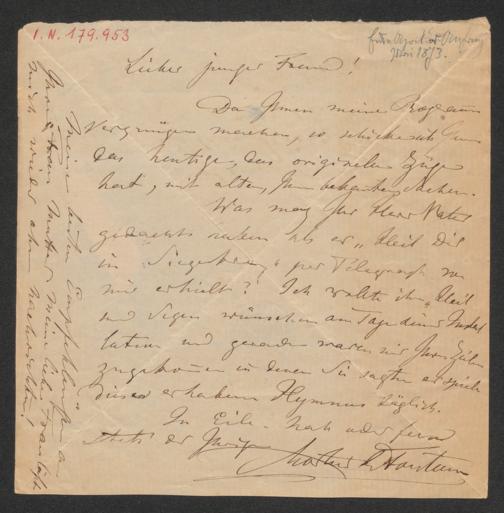 I. N. 179.953
Ende April od Anfang
Mai 1873.
Lieber junger Freund!
Da Ihnen meine Programme
Vergnügen machen, so schicke ich Ihnen
das heutige, das originelle Züge
hat, mit alten, Ihnen bekannten Sachen.
Was mag Ihr Herr Vater
gedacht haben als er „Heil Dir
im Siegekranz" per Telegraph von
mir erhielt? Ich wollte ihm „Heil
und Segen wünschen am Tage der Instal
lation und gerade waren mir Ihre Zeilen
zugekommen in denen Sie sagten er spiele
diesen erhabenen Hymnus täglich.
In Eile. Nah oder fern
stets der Ihrige
Meine besten Empfehlungen an
Ihre Frau Mutter
mich wieder ohne Nachrichten!